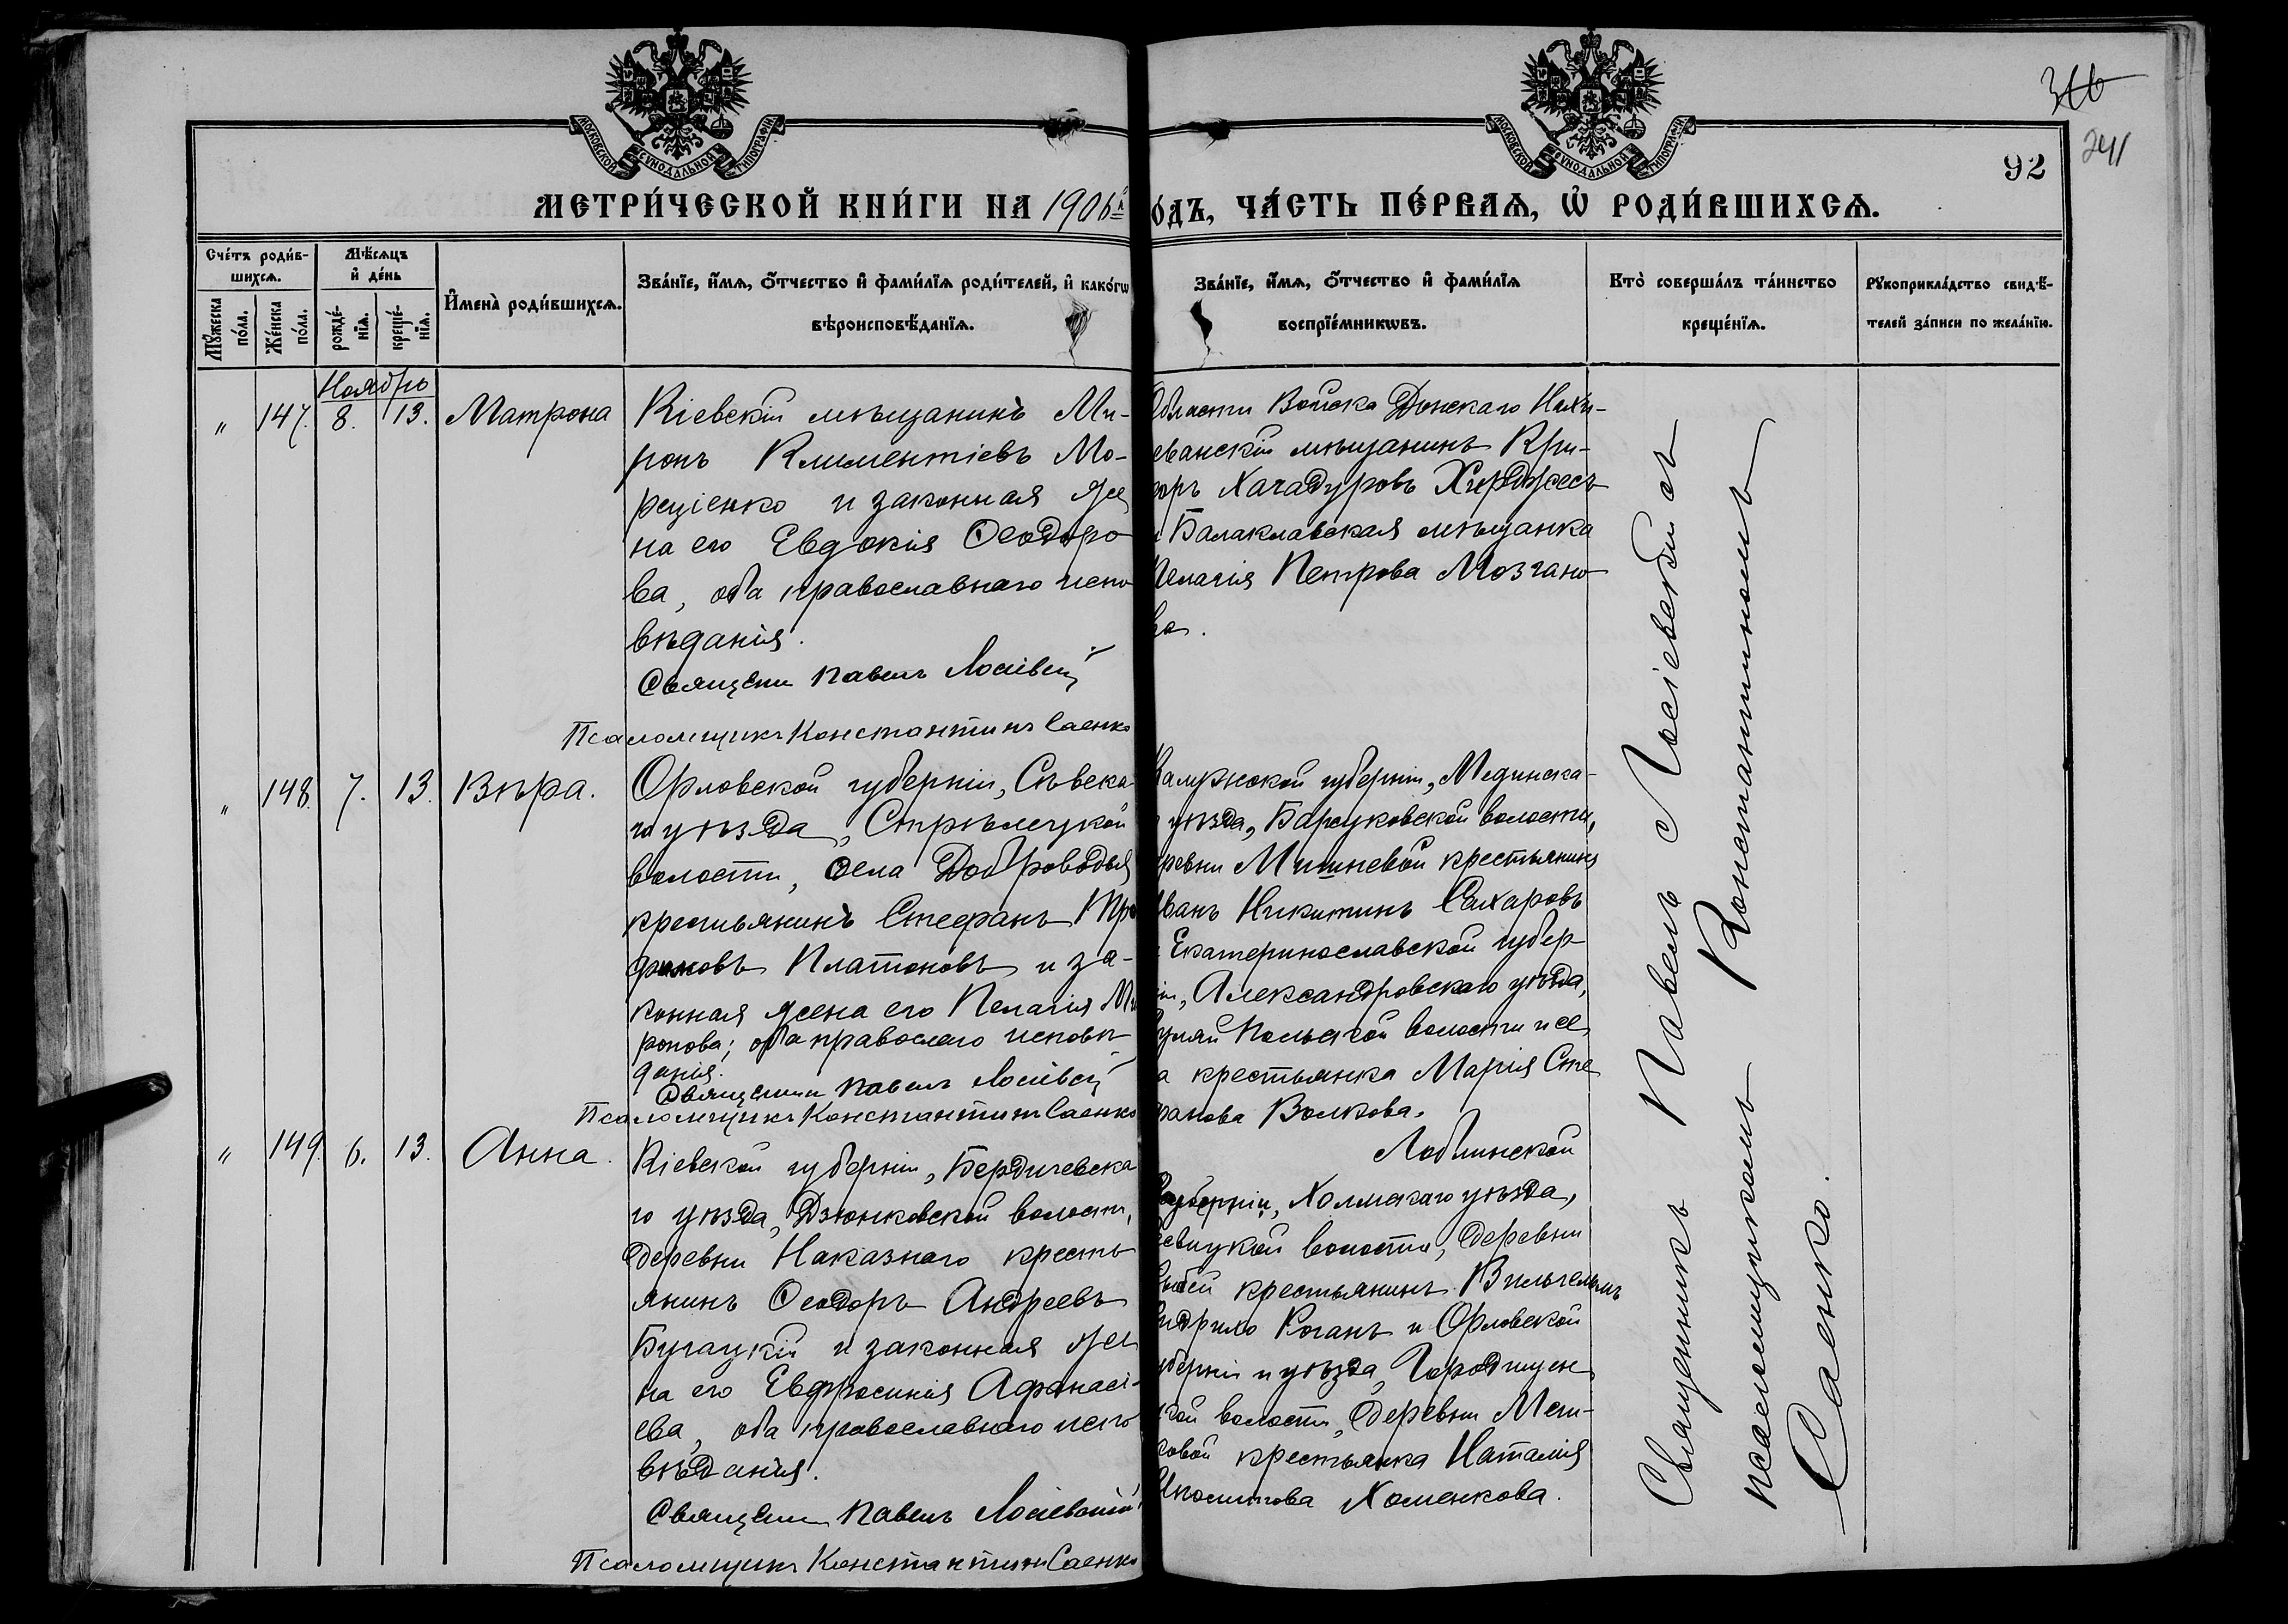 МОСКОВСКОЙ СѴНОДАЛЬНОЙ ТИПОГРАФІИ
МОСКОВСКОЙ СѴНОДАЛЬНОЙ ТИПОГРАФІИ
92
241
МЕТРИ́ЧЕСКОЙ КНИ́ГИ НА 1906й
о́дъ, ЧА́СТЬ ПЕ́РВАѦ, Ѡ҆ РОДИ́ВШИХСѦ.
Сче́тъ роди́в-
шихсѧ.
Мꙋ́жеска
по́ла.
Же́нска
по́ла.
Мѣ́сѧцъ
и҆ де́нь
рожде́-
нїѧ.
креще́-
нїѧ.
И҆мена̀ роди́вшихсѧ.
Зва́нїе, и҆́мѧ, ѻ҆́тчество и҆ фами́лїѧ роди́телей, и҆ како́гѡ
вѣроисповѣ́данїѧ.
Зва́нїе, и҆́мѧ, ѻ҆́тчество и҆ фами́лїѧ
воспрїе́мникѡвъ.
Кто̀ соверша́лъ та́инство
креще́нїѧ.
Рꙋкоприкла́дство свидѣ́-
телей за́писи по жела́нїю.
Ноябрь
" 147. 8. 13. Матрона
Кіевскій мѣщанинъ Ми-
ронъ Климентіевъ Мо-
и законная же
на его Евдокія Ѳеодоро
ва, обa православнаго испо
вѣданія.
Священн Павелъ Лосіевскій
Псаломщикъ Константинъ Саенко
Области Войска Донскаго Нахи-
еванскій мѣщанинъ Кри-
оръ Хачадуровъ
и Балаклавская мѣщанка
Пелагія Петрова Мозгано
ва.
" 148. 7. 13. Вѣра.
Орловской губерніи, Сѣвска
го уѣзда, Стрѣлецкой
волости, села Доброводья
крестьянинъ Стефанъ Тро
фимовъ Платоновъ и за-
конная жена его Пелагія Ми
ронова; оба правослаго исповѣ
данія.
Священни Павелъ Лосіевскій
Псаломщикъ Константинъ Саенко
Калужской губерніи, Медынска-
уѣзда, Барсуковской волости,
ревни Мишневой крестьянинъ
Иванъ Никитинъ Сахаровъ
Екатеринославской губер
іи, Александровскаго уѣзда,
Гуляй Польской волости и се
а крестьянка Марія Сте
фанова Волкова.
" 149. 6. 13. Анна.
Кіевской губерніи, Бердичевска
го уѣзда, Дзюнковской волости,
деревни Наказнаго кресть
янинъ Ѳеодоръ Андреевъ
Бугацкій и законная же
на его Евфросинія Афанасі-
ева, оба православнаго испо
вѣданія.
Священни Павелъ Лосіевскій
Псаломщикъ Константинъ Саенко
Люблинской
губерніи, Холмскаго уѣзда,
волости, деревни
крестьянинъ Вильгельмъ
Коганъ и Орловской
уберніи и уѣзда, Городищен
кой волости, деревни
крестьянка Наталія
Иполитова Хоменкова.
Священникъ Павелъ Лосіевскій съ
псаломщикомъ Константиномъ
Саенко.